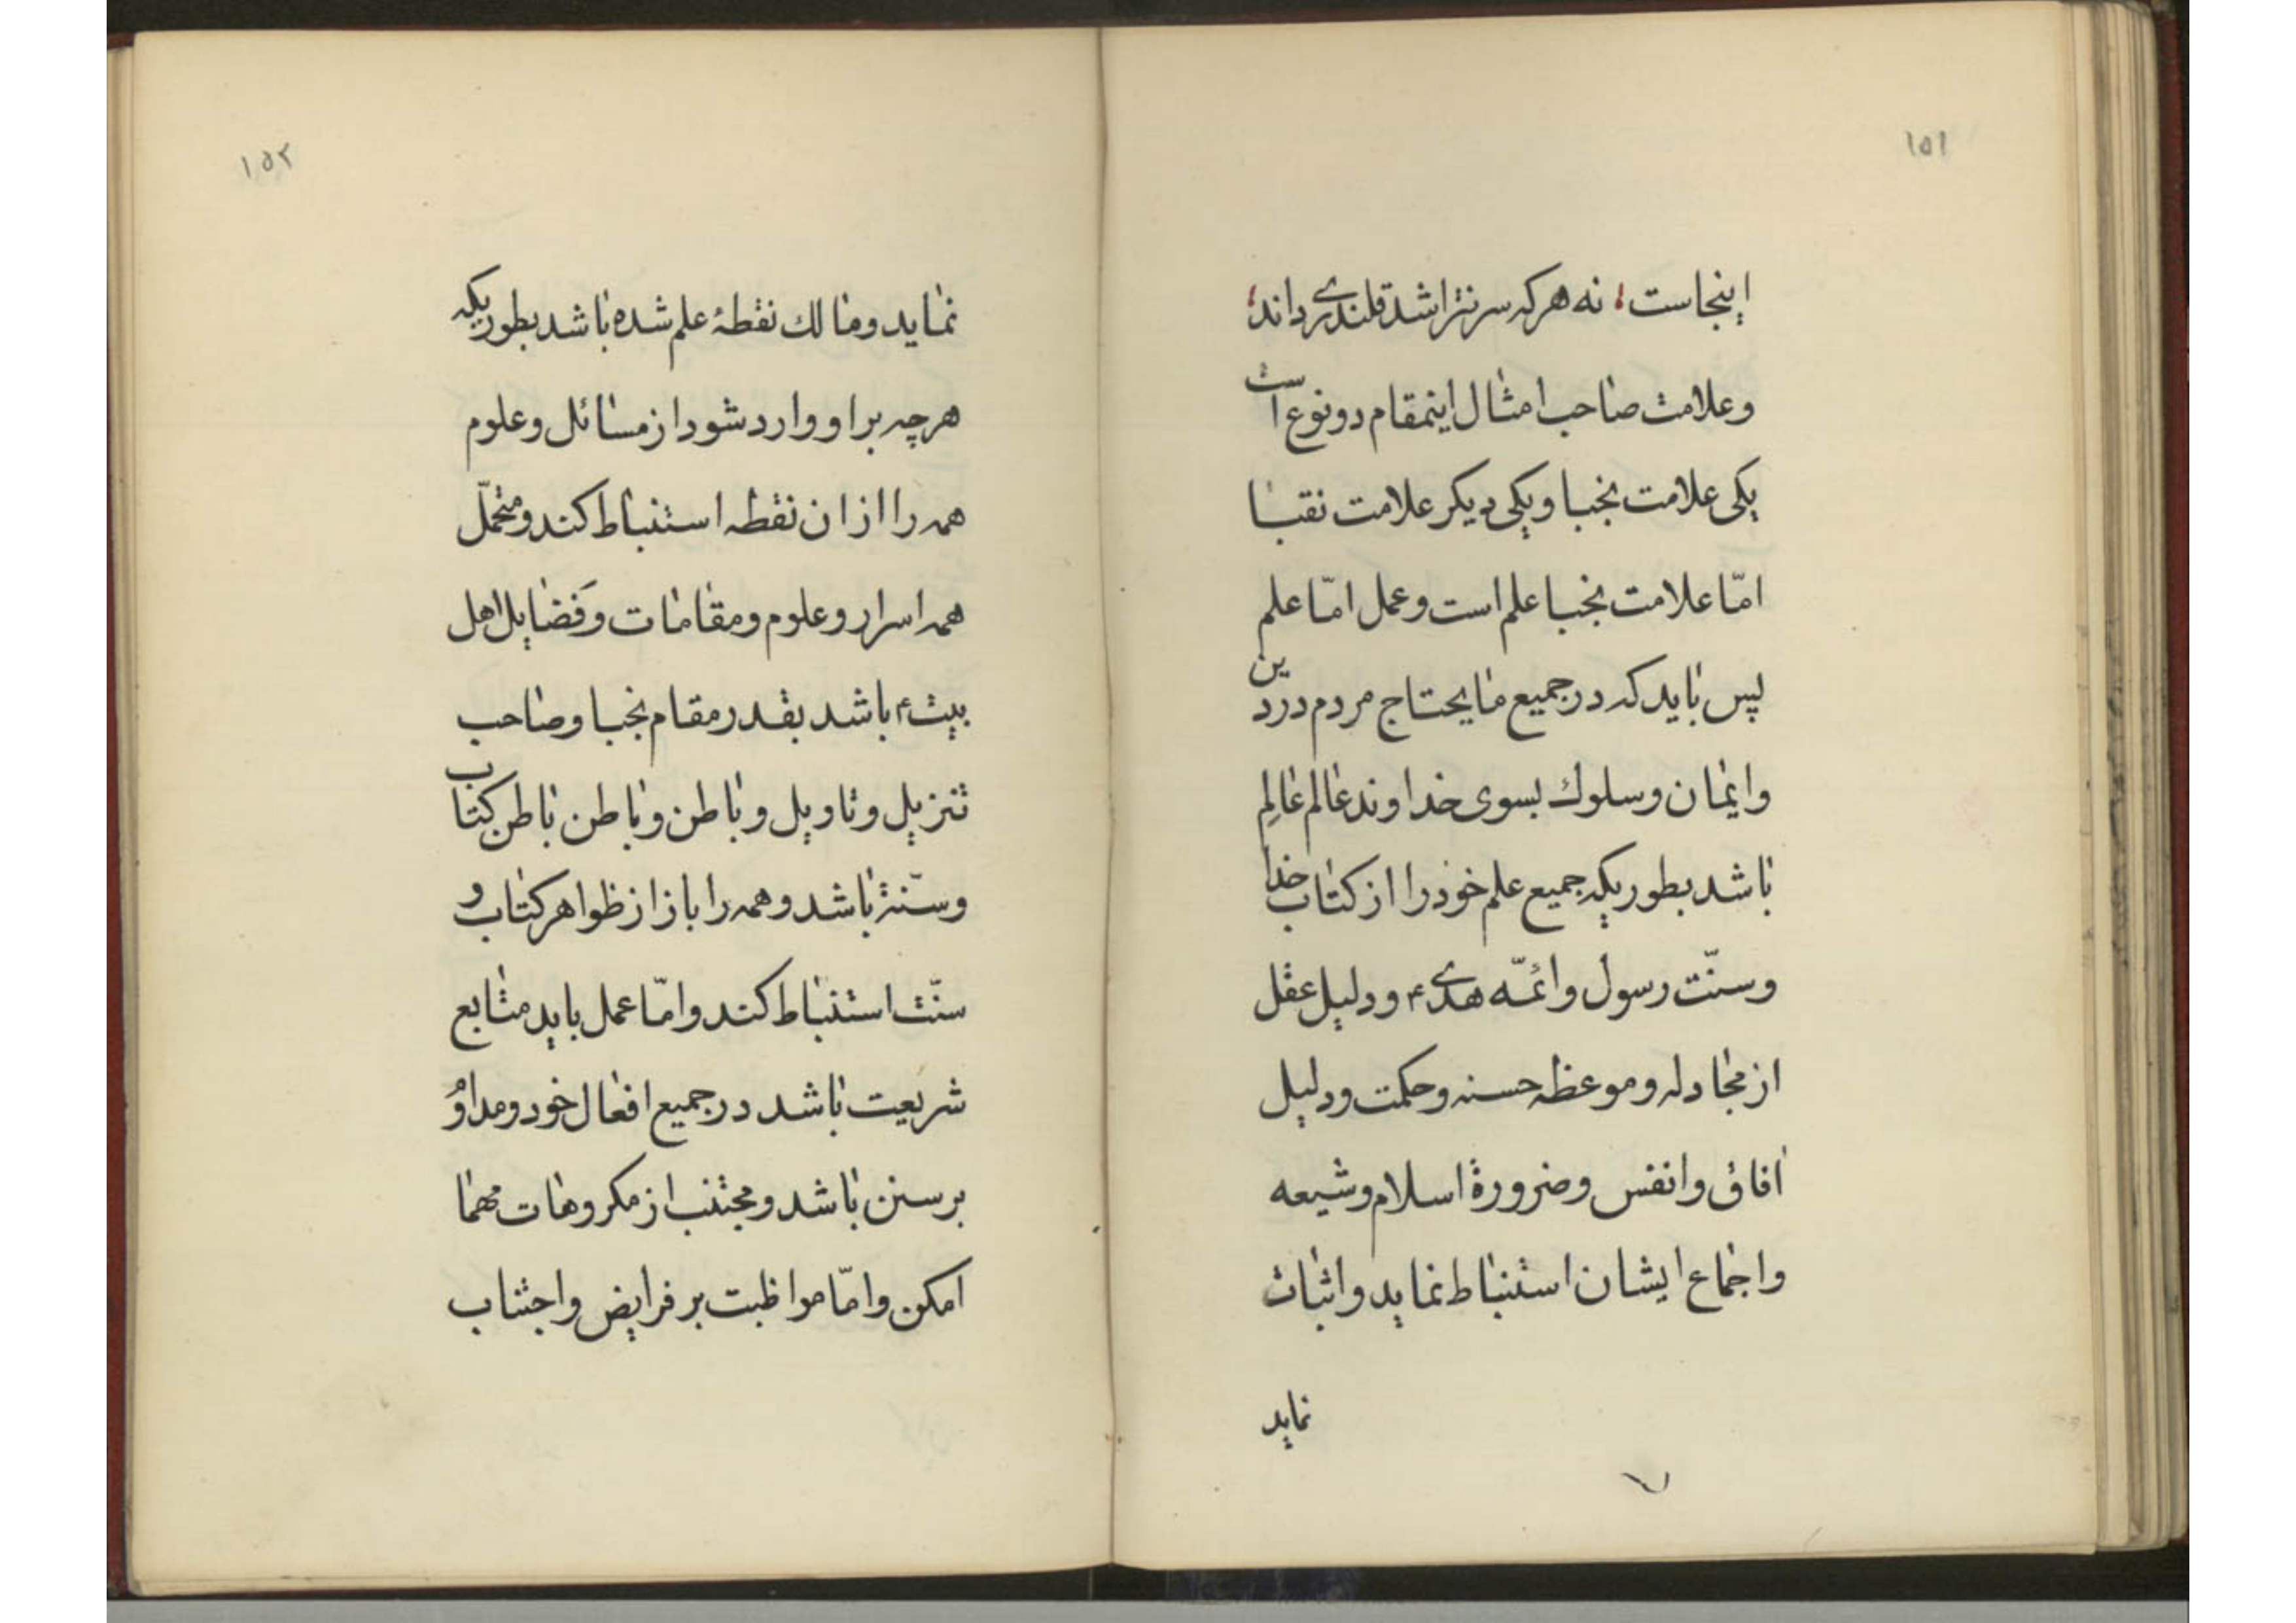 ۱۵۱
اینجاست نه هرکه سر نتراشد قلندری داند
وعلامت صاحب امثال اینمقام دونوع است
یکی علامت نجبا ویکی دیکر علامت نقبا
امّا علامت نجبا علم است وعمل امّا علم
پس باید که در جمیع مایحتاج مردم در دین
وایمان وسلوك بسوی خداوند عالم عالِم
باشد بطوریکه جمیع علم خود را از کتاب خدا
وسنّت رسول وائمّه هدی ؑ ودلیل عقل
از مجادله وموعظه حسنه وحکمت ودلیل
افاق وانفس وضرورة اسلام وشیعه
واجماع ایشان استنباط نماید واثبات
نماید
۱۵۲
نماید ومالك نقطهٔ علم شده باشد بطوریکه
هرچه بر او وارد شود از مسائل وعلوم
همه را از ان نقطه استنباط کند ومتحمّل
همه اسرار وعلوم ومقامات وفَضایل اهل
بیت ؑ باشد بقدر مقام نجبا وصاحب
تنزیل وتاویل وباطن وباطن باطن کتاب
وسنّة باشد وهمه را باز از ظواهر کتاب و
سنّت استنباط کند وامّا عمل باید متابع
شریعت باشد در جمیع افعال خود ومداوُ
بر سنن باشد ومجتنب از مکروهات مهما
امکن وامّا مواظبت بر فرایض واجتناب